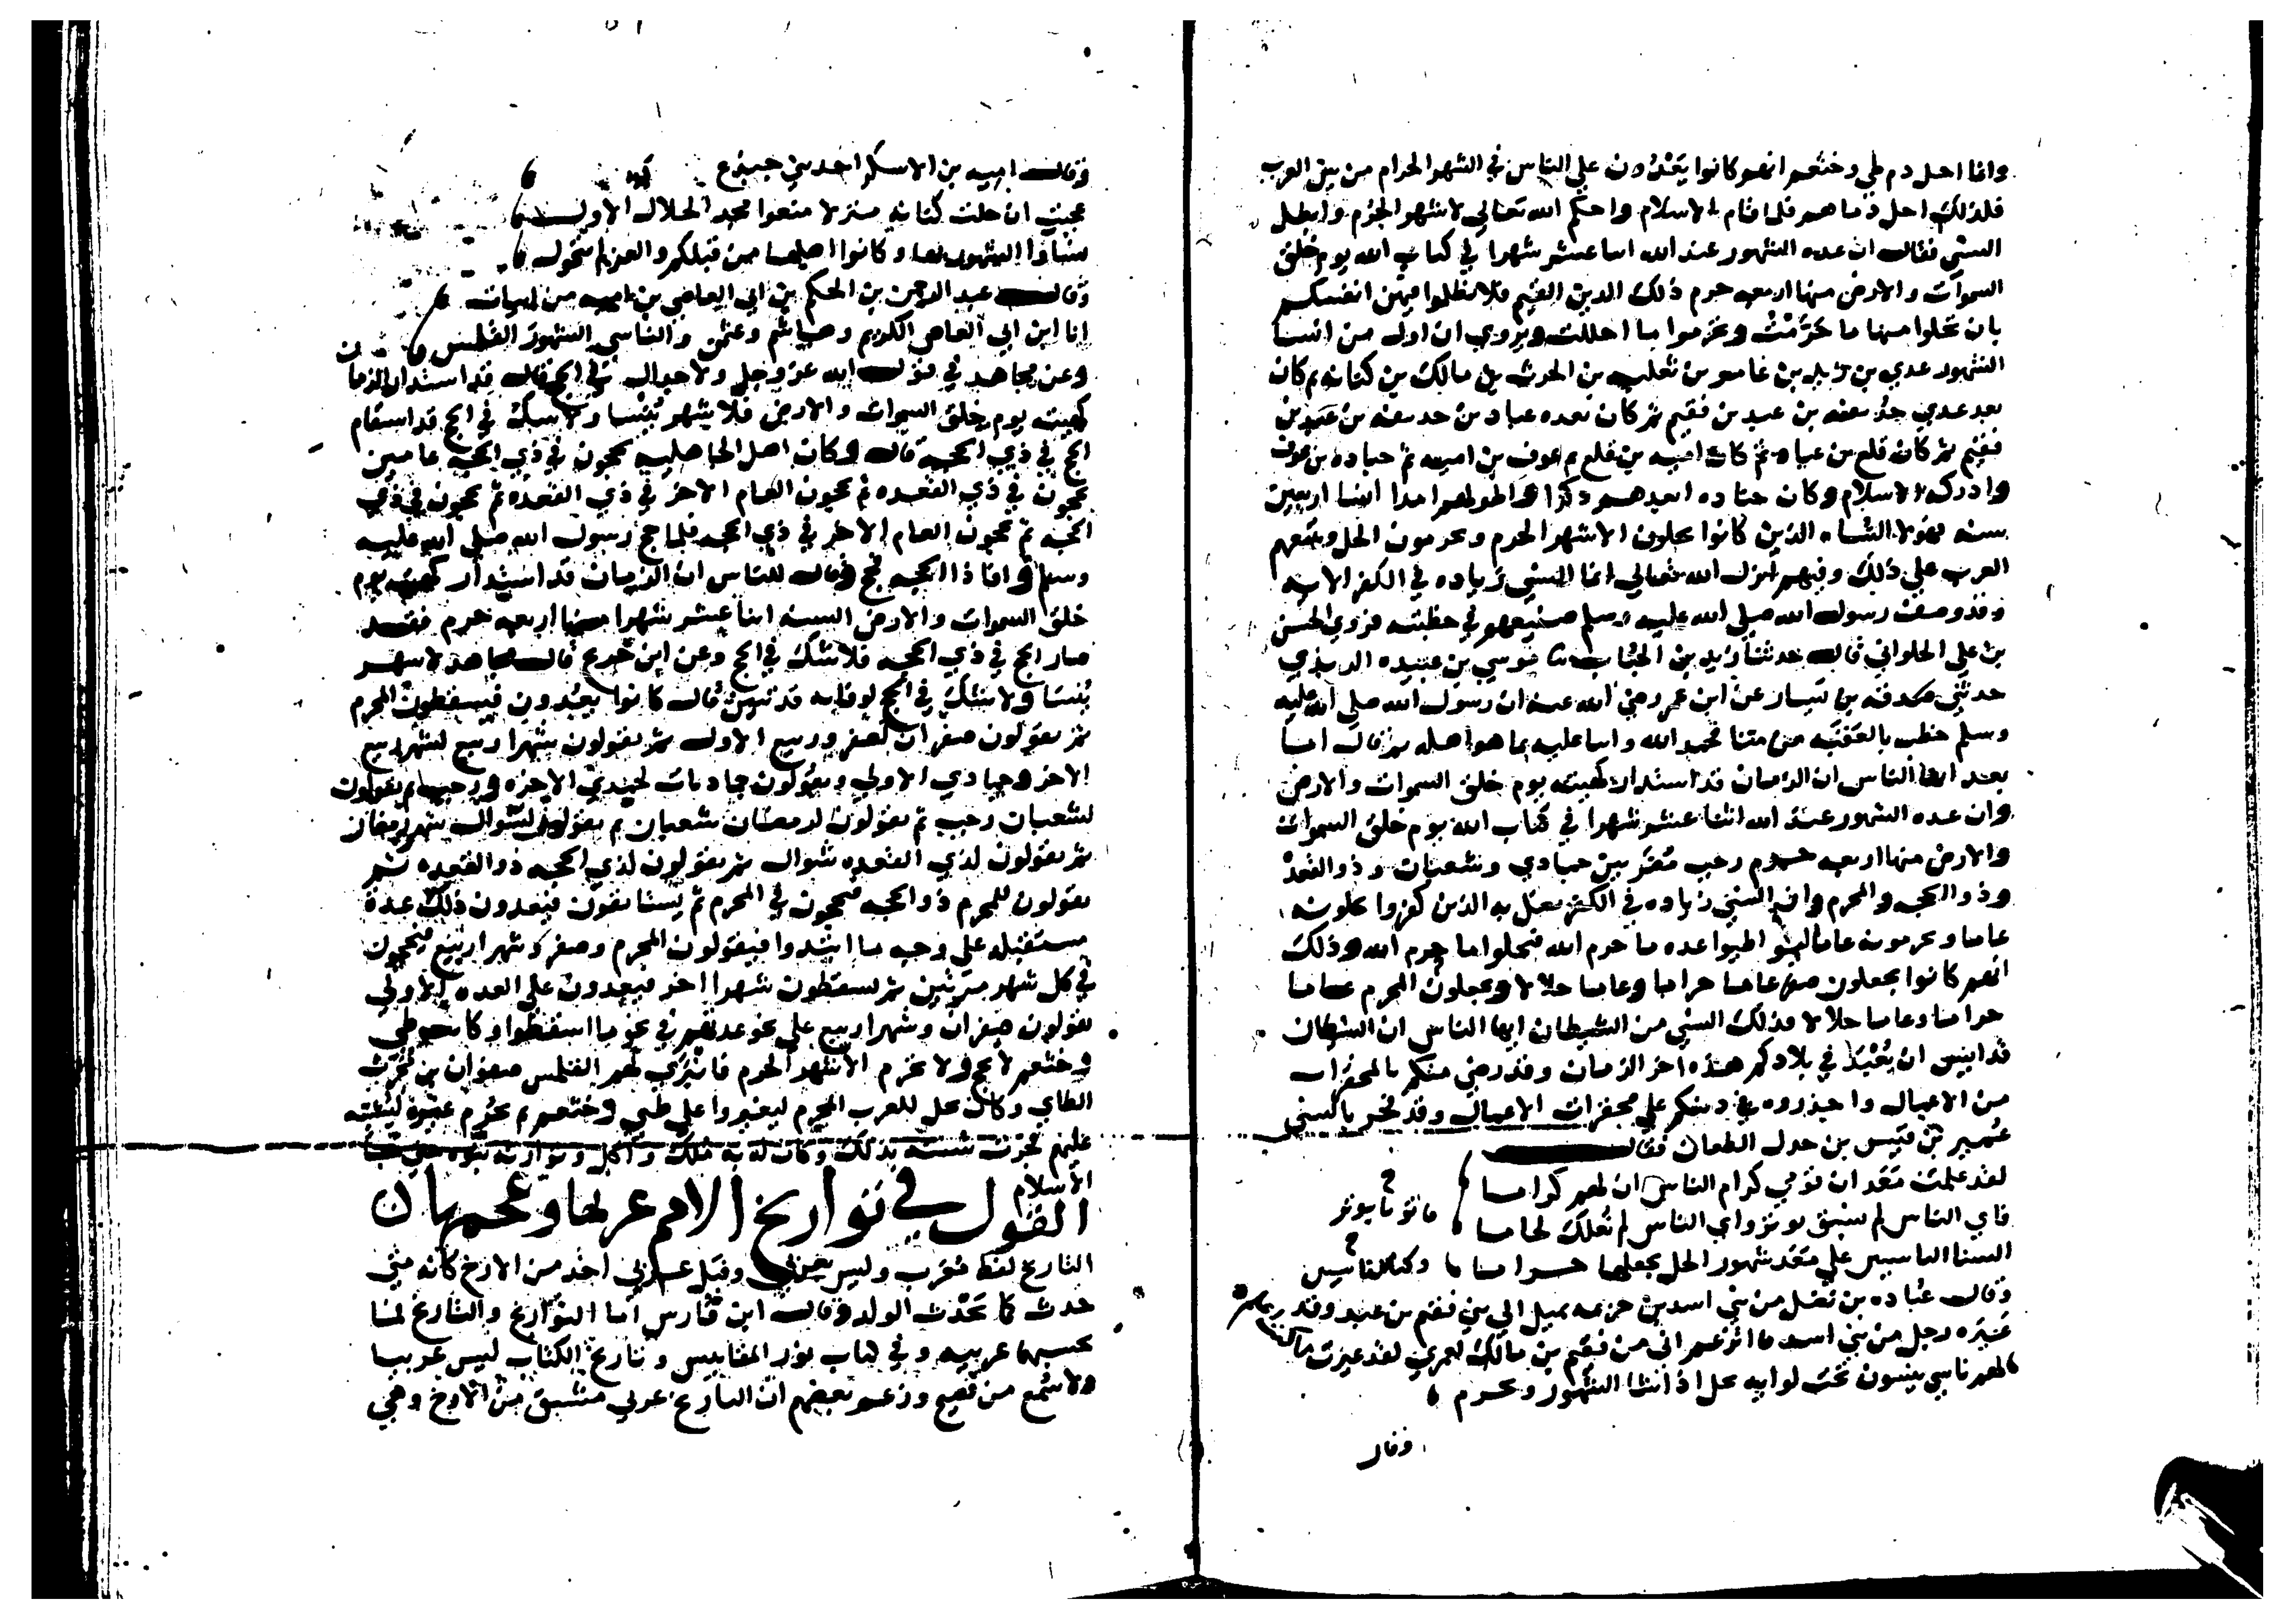 وانما احل دم طي وخثعم انهم كانوا يعدون علي الناس في الشهر الحرام من بين العرب
فلذلك احل دماهم فلما قام الاسلام واحكم الله تعالي الاشهر الحرم وابطل
النسي فقال ان عده الشهور عند الله اثنا عشر شهرا في كتاب الله يوم خلق
السموات والارض منها اربعه حرم ذلك الدين القيم فلا تظلموا فيهن انفسكم
بان تحلوا منها ما حرمت وتحرموا ما احللت ويروي ان اول من انسا
الشهور عدي بن زيد بن عامر بن ثعلبه بن الحرث بن مالك بن كنانه ثم كان
بعد عدي حذيفه بن عبد بن فقيم ثم كان بعده عباد بن حذيفه بن عبد بن
فقيم ثم كان قلع بن عباد ثم كان اميه بن قلع ثم عوف بن اميه ثم جناده بن عوف
وادركه الاسلام وكان جناده ابعدهم ذكرا واطولهم امدا انسا اربعين
سنه فهولا النساه الذين كانوا يحلون الاشهر الحرم ويحرمون الحل وتتبعهم
العرب علي ذلك وفيهم انزل الله تعالي انما النسي زياده في الكفر الايه
وقد وصف رسول الله صلي الله عليه وسلم صنيعهم في خطبته فروي الحسن
بن علي الحلواني قال حدثنا زيد بن الحباب ثنا موسي بن عبيده الربذي
حدثني صدقه بن يسار عن ابن عمر رضي الله عنه ان رسول الله صلي الله عليه
وسلم خطب بالعقبه من منا فحمد الله واثنا عليه بما هو اهله ثم قال اما
بعد ايها الناس ان الزمان قد استدار كهيته يوم خلق السموات والارض
وان عده الشهور عند الله اثنا عشر شهرا في كتاب الله يوم خلق السموات
والارض منها اربعه حرم رجب مضر بين جمادي وشعبان وذو القعده
وذو الحجه والمحرم وان النسي زياده في الكفر يضل به الذين كفروا يحلونه
عاما ويحرمونه عاما ليواطيوا عده ما حرم الله فيحلوا ما حرم الله وذلك
انهم كانوا يجعلون صفر عاما حراما وعاما حلالا ويجعلون المحرم عاما
حراما وعاما حلالا وذلك النسي من الشيطان ايها الناس ان الشيطان
قد ايس ان يعبد في بلادكم هذه اخر الزمان وقد رضي منكم بالمحقرات
من الاعمال واحذروه في دينكم علي محقرات الاعمال وقد فخر بالنسي
عمير بن قيس بن جدل الطعان فقال
لقد علمت معد ان قومي كرام الناس ان لهم كراما
فاي الناس لم نسبق بوتر واي الناس لم نعلك لجاما
السنا الناسيين علي معد شهور الحل نجعلها حراما
وقال عباده بن من بني اسد بن خزيمه الي بني فقيم بن عبد وقد
عيره رجل من بني اسد اتزعم اني من فقيم بن مالك لعمري لقد غيرت
لهم ناسي يمشون تحت لوايه يحل اذا شا الشهور ويحرم
وقال
وقال اميه بن الاسكر احد بني جندع
عجبت ان حلت كنانه منزلا منعوا مجد الحلال الاول
نساوا الشهور وكانوا اهلها من قبلكم والعز لم يتحول
وقال عبد الرحمن بن الحكم بن ابي العاصي بن اميه من ابيات
انا ابن ابي العاصي الكريم وهاشم وعثمن والناسي الشهور القلمس
وعن مجاهد في قول الله عز وجل ولا جدال في الحج قال قد استدار الزمان
كهيته يوم خلق السموات والارض فلا شهر ينسا ولا شك في الحج قد استقام
الحج في ذي الحجه قال وكان اهل الجاهليه يحجون في ذي الحجه عامين
يحجون في ذي القعده ثم يحجون العام الاخر في ذي القعده ثم يحجون في ذي
الحجه ثم يحجون العام الاخر في ذي الحجه فلما حج رسول الله صلي الله عليه
وسلم وافا ذا الحجه فحج وقال للناس ان الزمان قد استدار كهيته يوم
خلق السموات والارض السنه اثنا عشر شهرا منها اربعه حرم فقد
صار الحج في ذي الحجه فلا شك في الحج وعن ابن جريج قال مجاهد لا شهر
ينسا ولا شك في الحج قد تبين قال كانوا يعدون فيسقطون المحرم
ثم يقولون صفران لصفر وربيع الاول ثم يقولون شهرا ربيع لشهر ربيع
الاخر وجمادي الاولي ويقولون جماديان لجمدي الاخره ورجب ثم يقولون
لشعبان رجب ثم يقولون لرمضان شعبان ثم يقولون لشوال شهر رمضان
ثم يقولون لذي القعده شوال ثم يقولون لذي الحجه ذو القعده ثم
يقولون للمحرم ذو الحجه فيحجون في المحرم ثم يستانفون فيعدون ذلك عده
مستقبله علي وجه ما ابتدوا فيقولون المحرم وصفر وشهرا ربيع فيحجون
في كل شهر مرتين ثم يسقطون شهرا اخر فيعدون علي العده الاولي
يقولون صفران وشهرا ربيع علي نحو عدتهم في نحو ما اسقطوا وكانت طي
وخثعم لا تحج ولا تحرم الاشهر الحرم فانبري لهم القلمس صفوان بن محرث
الطاي وكان يحل للعرب المحرم ليغيروا علي طي وخثعم ثم يحرم
عليهم فجرت سنته بذلك وكان له به ملك واكل وتوارثه بنوه حتي جا
الاسلام
القول في تواريخ الامم عربها وعجمها
التاريخ لفظ معرب وليس بعربي وقيل عربي اخذ من الارخ كانه شي
حدث كما يحدث الولد وقال ابن فارس اما التواريخ والتاريخ لما
نحسبها عربيه وفي كتاب نور المقاييس وتاريخ الكتاب ليس عربيا
ولا سمع من فصيح وزعم بعضهم ان التاريخ عربي مشتق من الارخ وهي